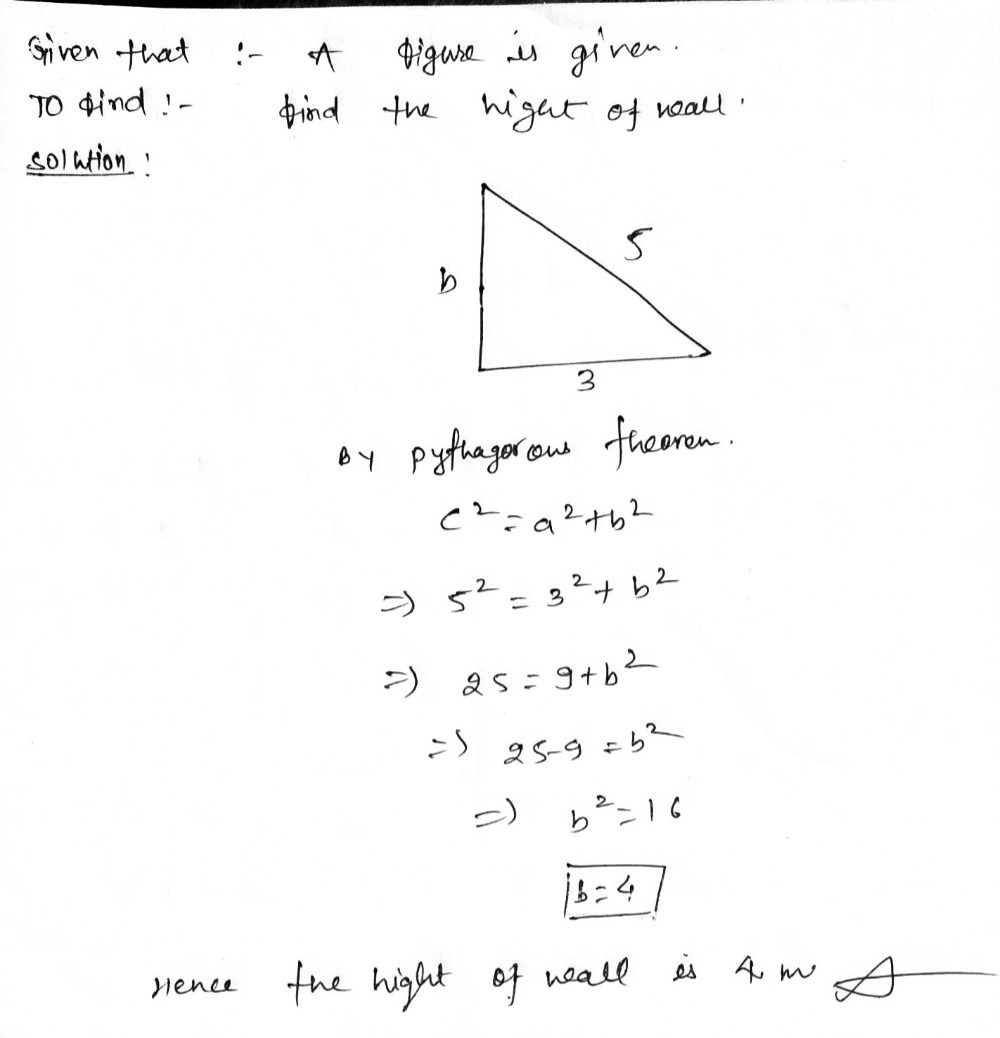 Given that :- A figure is given.
TO find :- find the hight of wall.
solution :
5
b
3
BY pythagorous theoren.
c² = a² + b²
=) 5² = 3² + b²
=) 25 = 9 + b²
=) 25-9 = b²
=) b² = 16
b = 4
Hence the hight of wall is 4 m